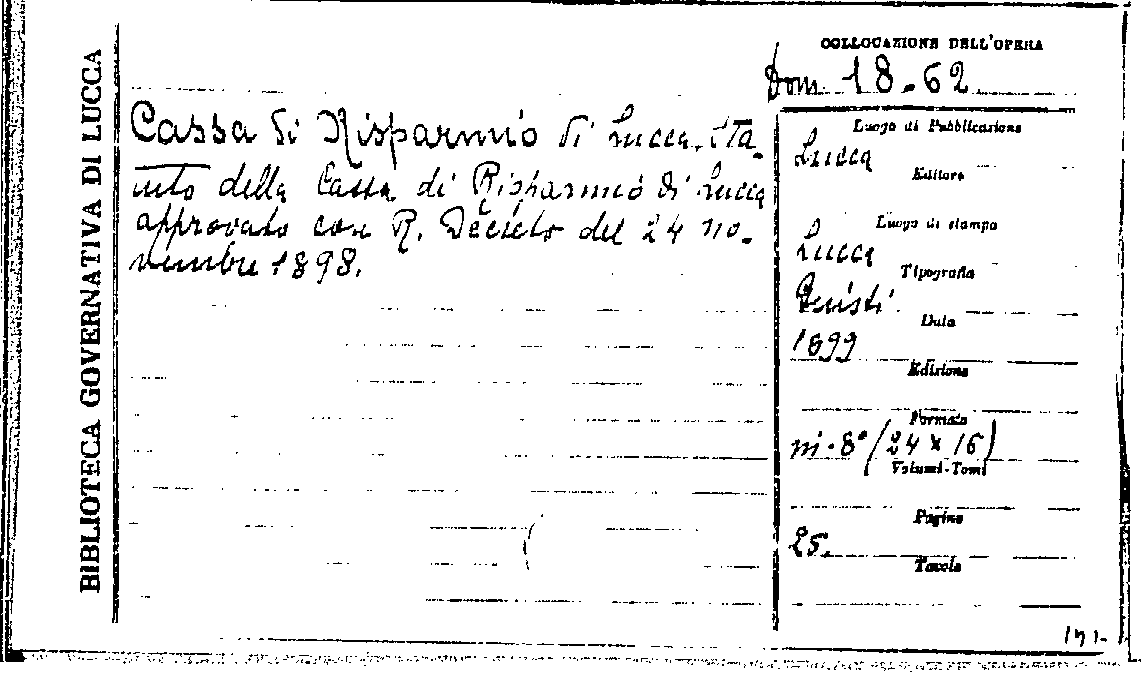 BIBLIOTECA GOVERNATIVA DI LUCCA
COLLOCAZIONE DELL'OPERA
Dom 18-62
Cassa di Risparmio di Lucca. Sta-
tuto della Cassa di Risparmio di Lucca
approvato con R. Decreto del 24 no-
vembre 1898.
Luogo di Pubblicazione
Lucca
Editore
Luogo di stampa
Lucca
Tipografia
Giusti
Data
1899
Edizione
Formato
in-8° (24 x 16)
Volumi-Tomi
Pagine
25.
Tavole